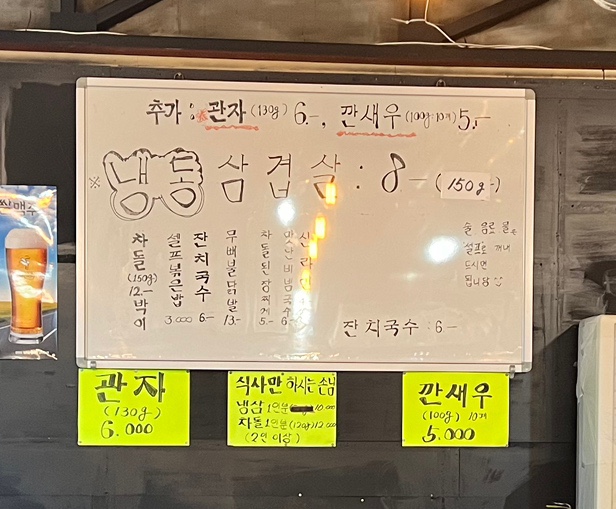 추가: 관자(130g) 6.-, 깐새우(100g·10개) 5.-
※ 냉동삼겹살: 8-(150g-)
차돌박이
(150g)
12.-
셀프볶음밥
3.000
잔치국수
6-
무뼈불닭발
13.-
차돌된장찌개
5.-
맛난비냉국수
6-
술 음료 물
셀프로 꺼내
드시면
됩니다
잔치국수 : 6-
생맥주
관자
(130g)
6.000
식사만 하시는 손님
냉삼 1인분 10.000
차돌 1인분(120g) 12.000
(2인 이상)
깐새우
(100g) 10개
5.000